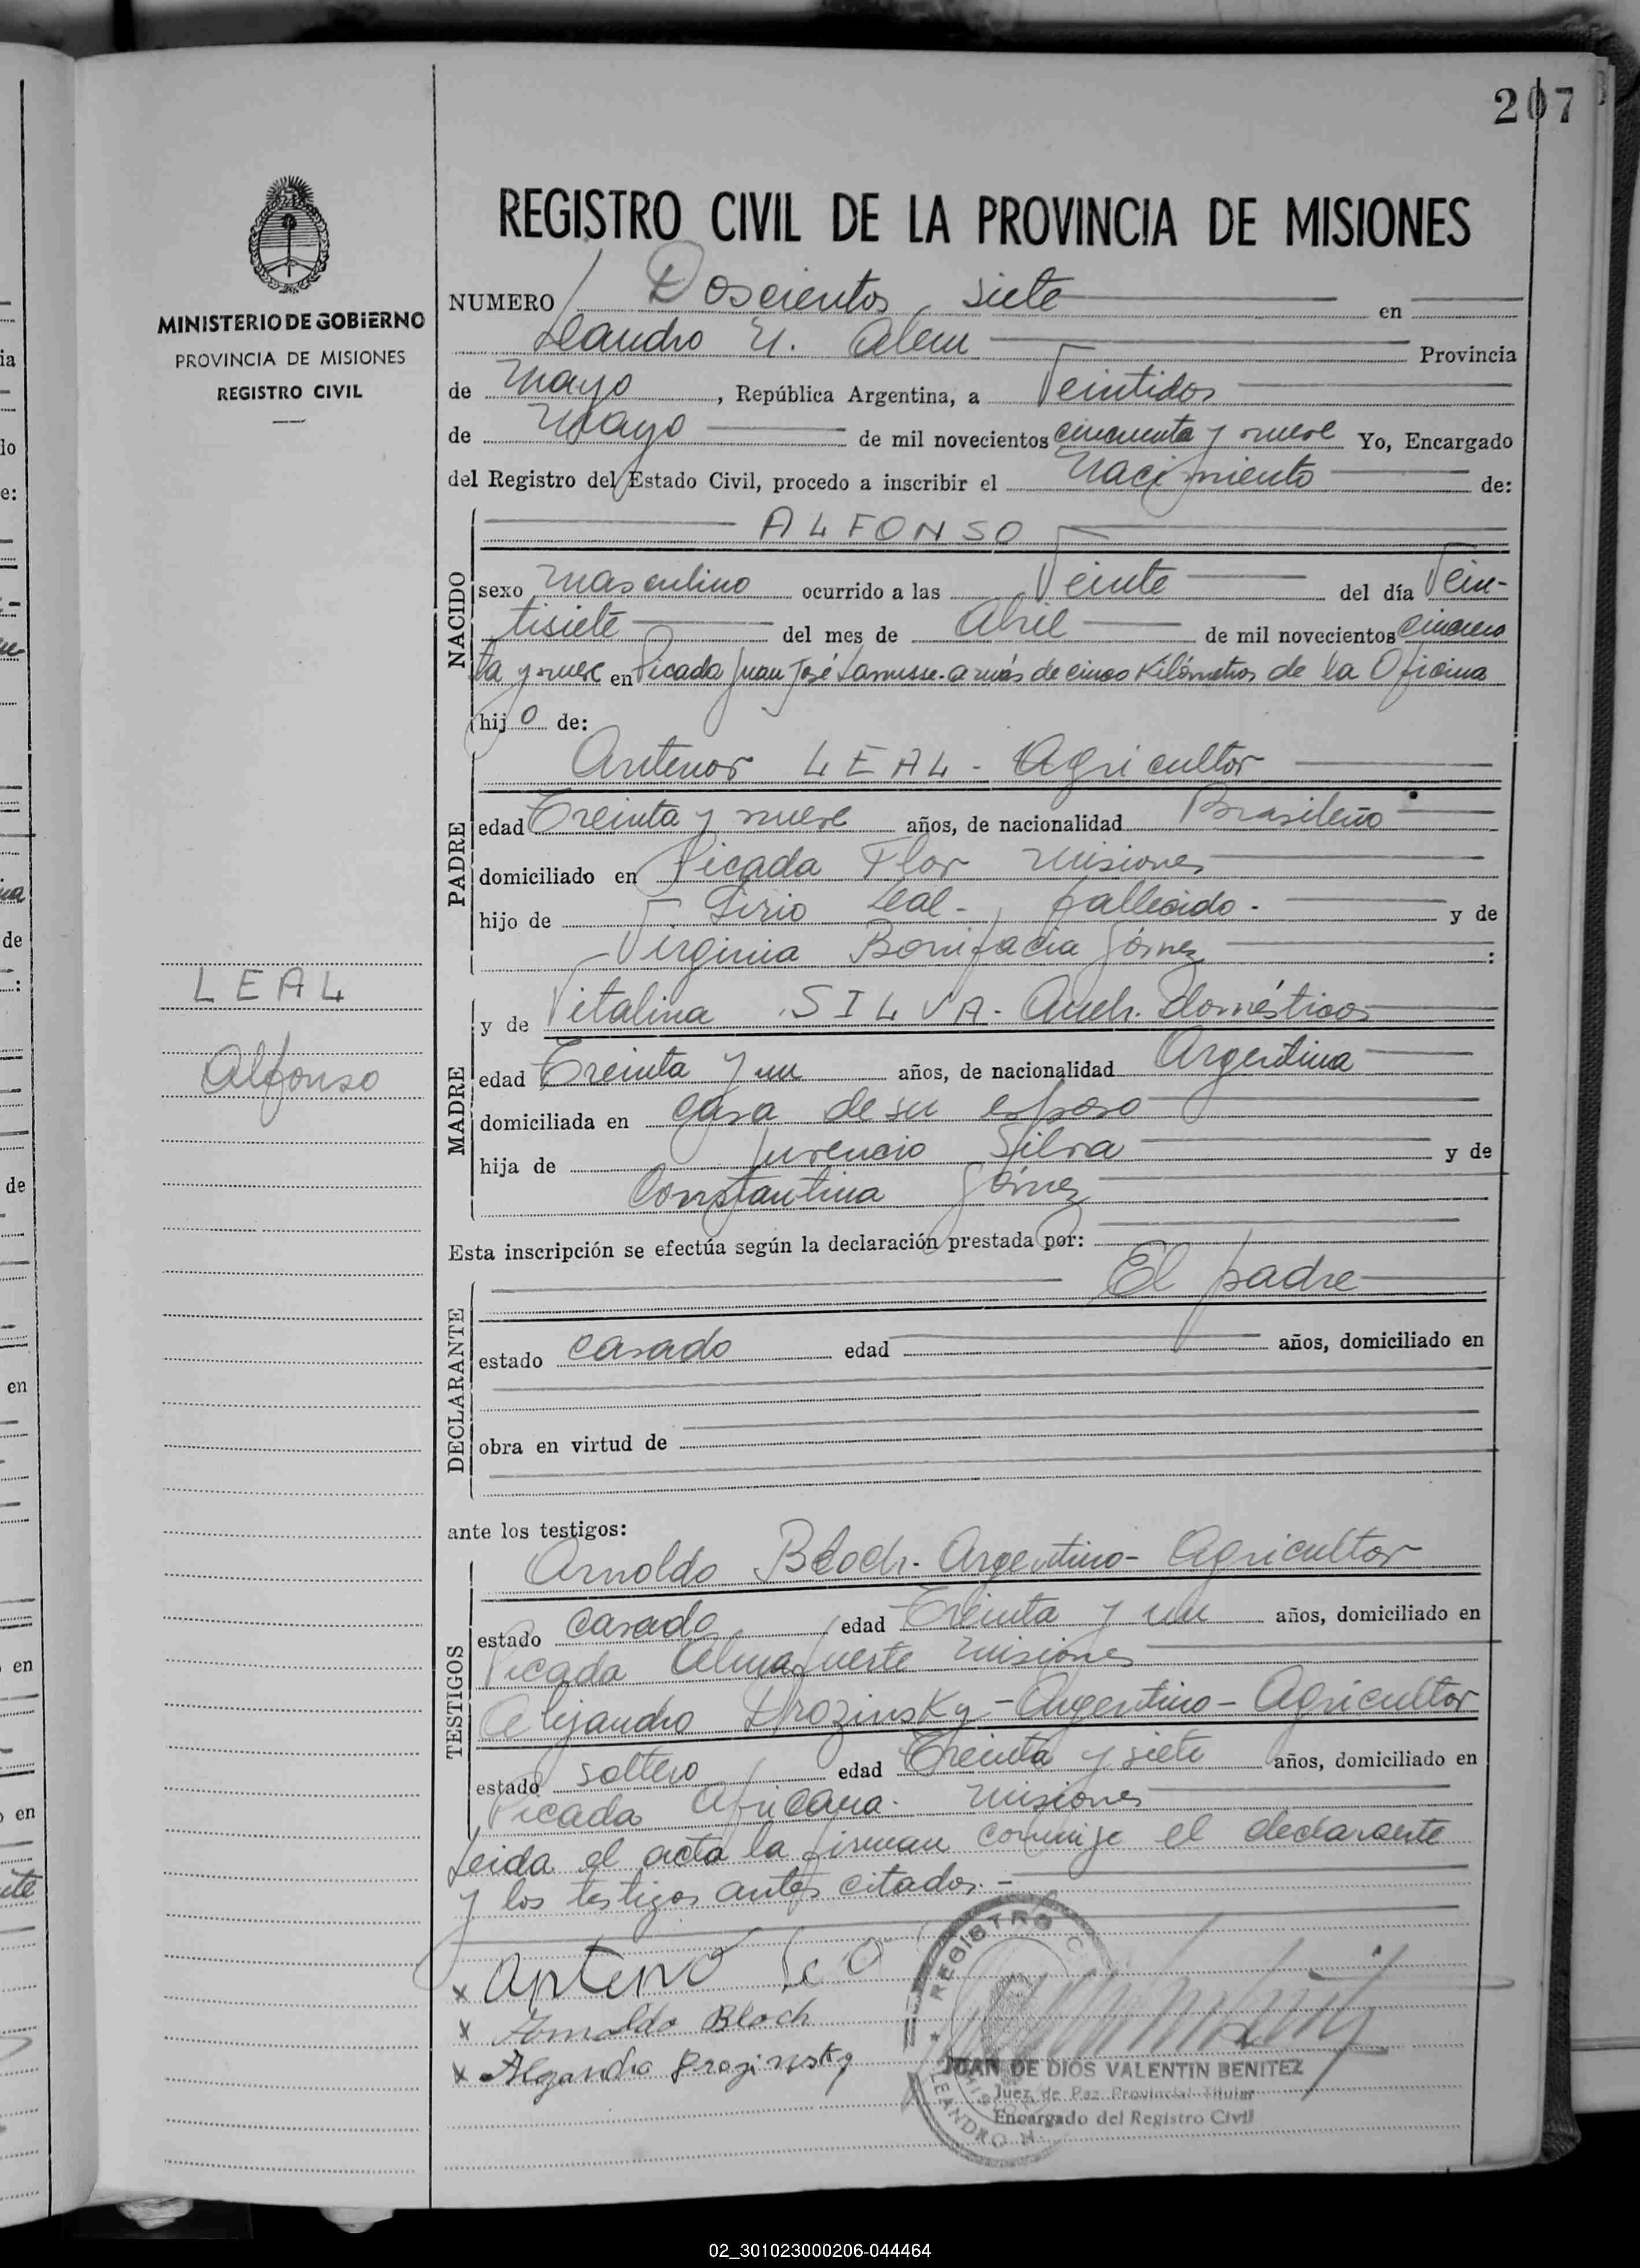 207
REGISTRO CIVIL DE LA PROVINCIA DE MISIONES
MINISTERIO DE GOBIERNO
PROVINCIA DE MISIONES
REGISTRO CIVIL
NUMERO Doscientos siete en
Leandro N. Alem Provincia
de Mayo, República Argentina, a Veintidos
de Mayo de mil novecientos cincuenta y nueve Yo, Encargado
del Registro del Estado Civil, procedo a inscribir el Nacimiento de:
NACIDO
ALFONSO
sexo Masculino ocurrido a las Veinte del día Vein-
tisiete del mes de Abril de mil novecientos cincuen
ta y nueve en Picada Juan José Lanusse. a más de cinco Kilómetros de la Oficina
hijo de:
PADRE
Antenor LEAL - Agricultor
edad Treinta y nueve años, de nacionalidad Brasileño
domiciliado en Picada Flor Misiones
hijo de Sirio Leal - fallecido. y de
Virginia Bonifacia Gómez :
LEAL
Alfonso
MADRE
y de Vitalina SILVA - Queh. domésticos
edad Treinta y un años, de nacionalidad Argentina
domiciliada en casa de su esposo
hija de Juvencio Silva y de
Constantina Gómez
Esta inscripción se efectúa según la declaración prestada por:
DECLARANTE
El padre
estado casado edad años, domiciliado en
obra en virtud de
ante los testigos:
TESTIGOS
Arnoldo Bloch - Argentino - Agricultor
estado casado edad Treinta y un años, domiciliado en
Picada Almafuerte Misiones
Alejandro Drozinsky - Argentino - Agricultor
estado soltero edad Treinta y siete años, domiciliado en
Picada Africana. Misiones
Leida el acta la firman conmigo el declarante
y los testigos antes citados. -
x Antenor
x Arnoldo Bloch
x
REGISTRO
LEANDRO N.
JUAN DE DIOS VALENTIN BENITEZ
Juez de Paz Provincial Titular
Encargado del Registro Civil
02_301023000206-044464